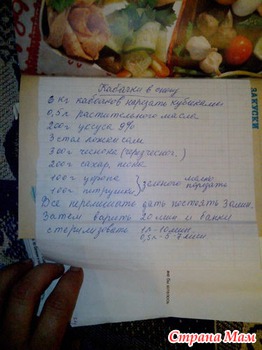 Кабачки в соку
3 кг кабачков нарезать кубиками
0,5 л растительного масла
200г уксуса 9%
3 стол ложки соли
300г чеснока (через чеснок.)
200г сахар. песка
100г укропа } зелень мелко
100г петрушки } порезать
Все перемешать дать постоять 30 мин.
Затем варить 20 мин и банки
стерилизовать 1л - 10 мин
0,5л - 5-7 мин.
ЗАКУПКИ
Страна Мам